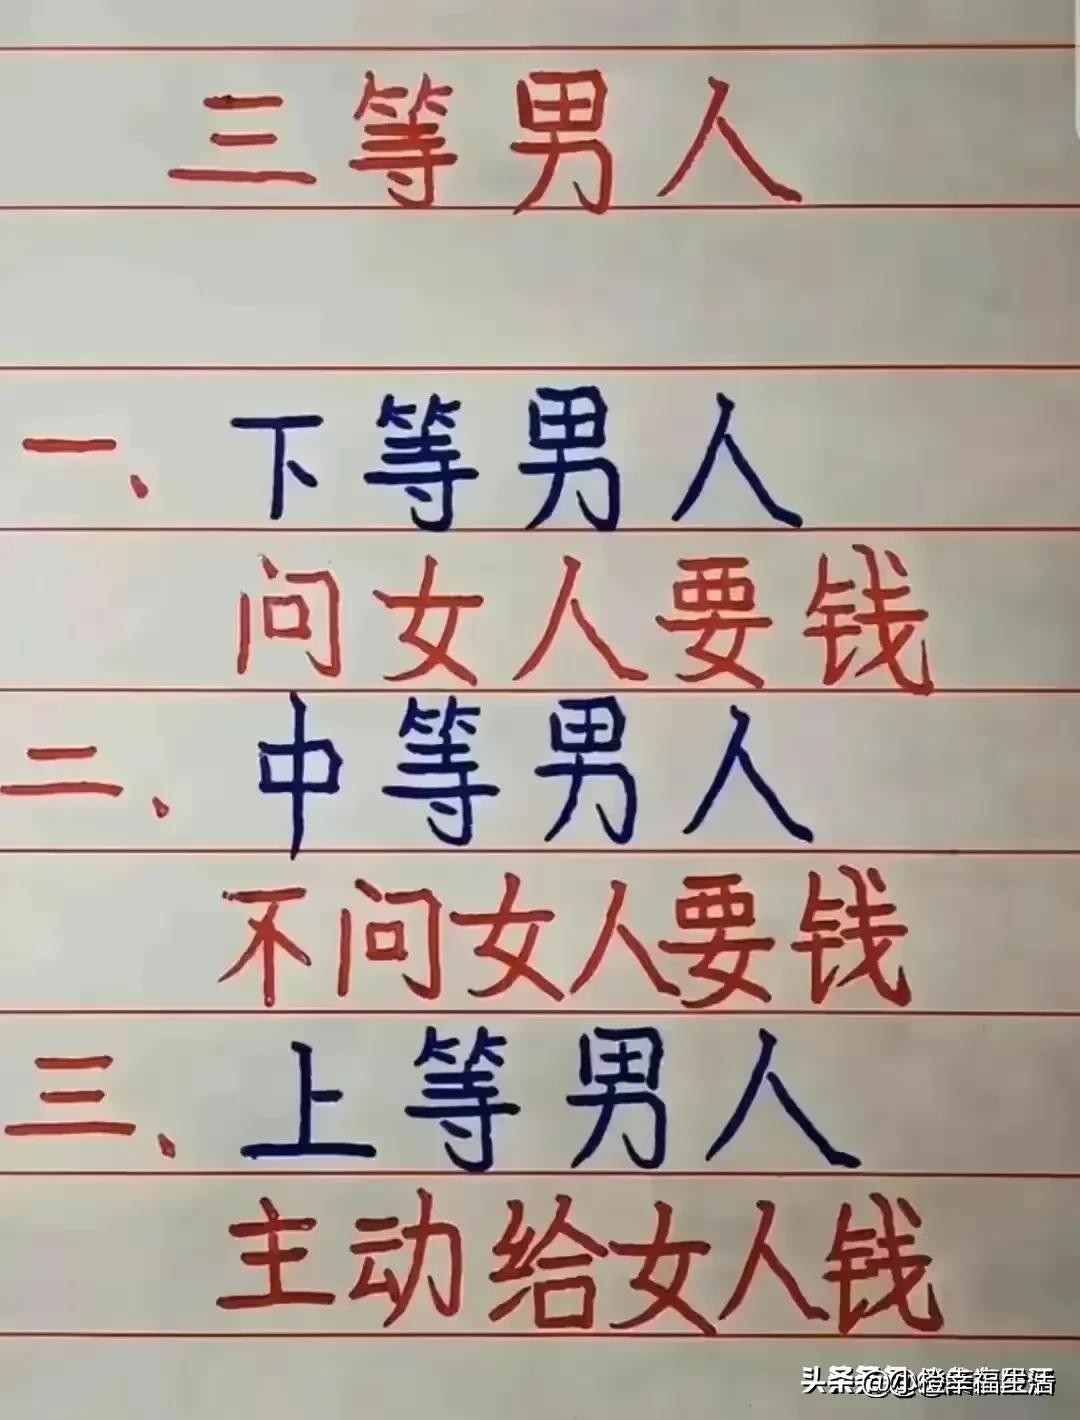 三等男人
一、下等男人
问女人要钱
二、中等男人
不问女人要钱
三、上等男人
主动给女人钱
头条 @小橙幸福生活